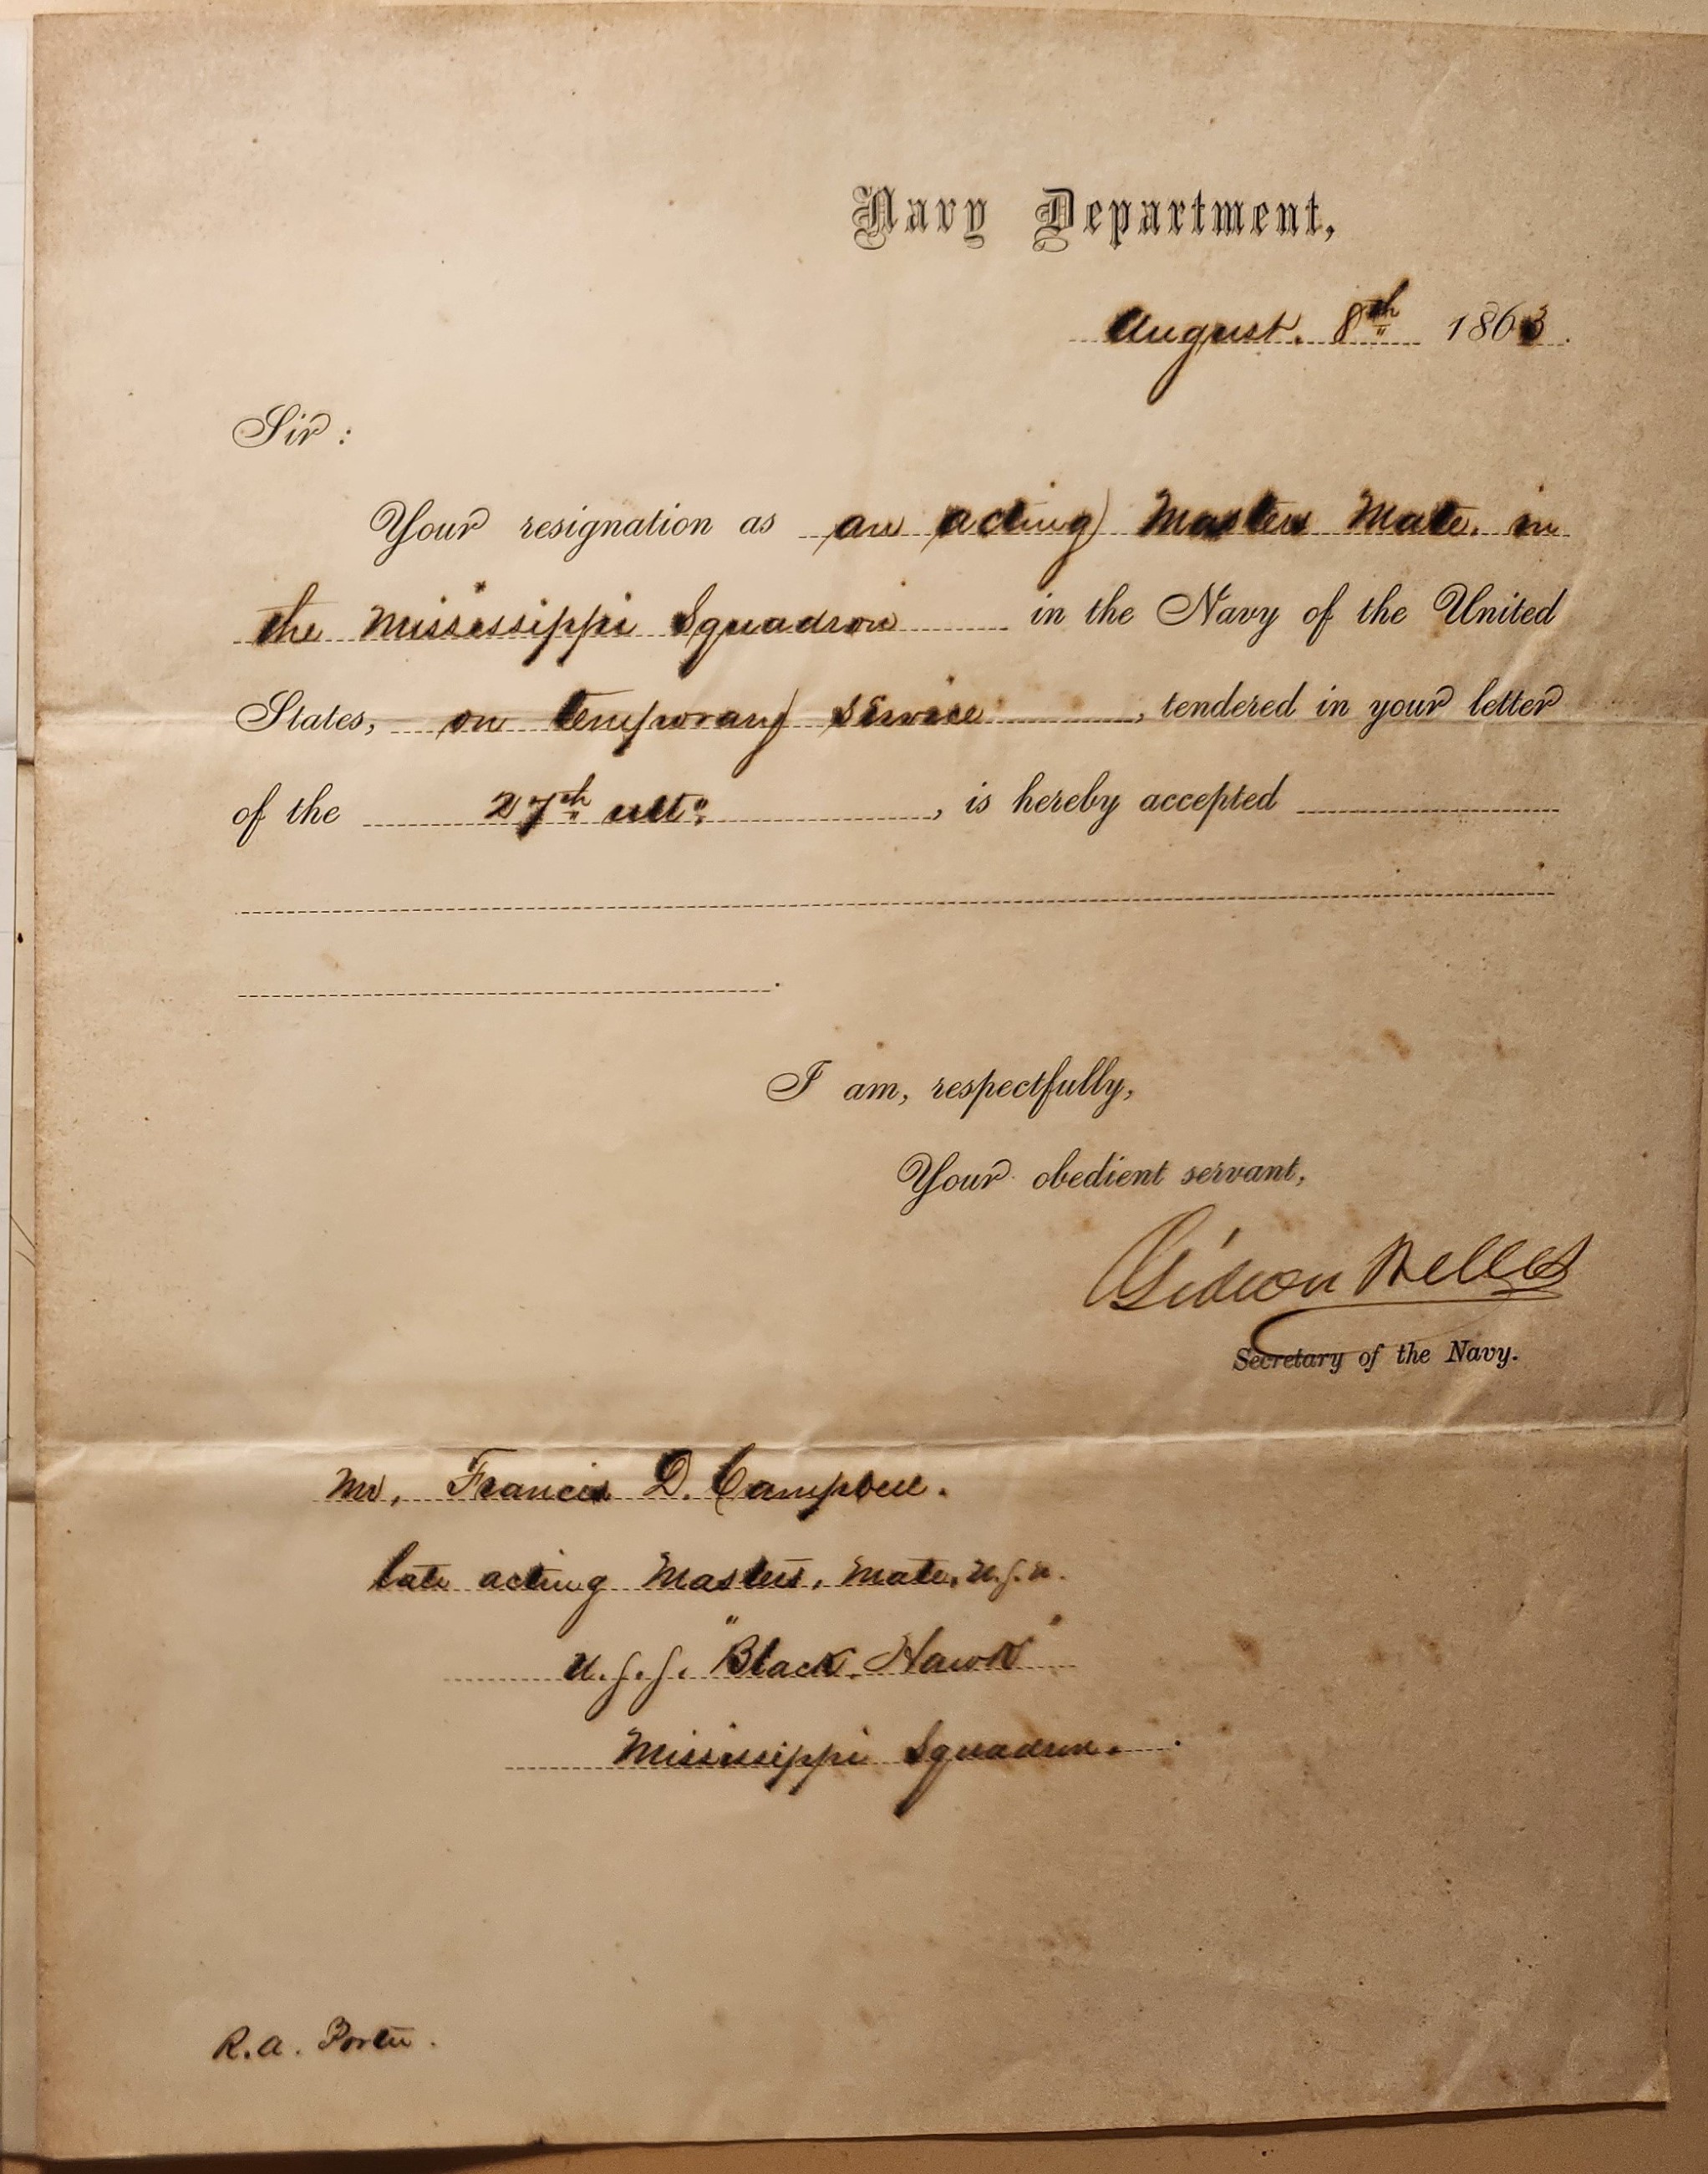 Navy Department,
August. 8th 1863.
Sir:
Your resignation as an acting Masters Mate. in
the Mississippi Squadron in the Navy of the United
States, on temporary service, tendered in your letter
of the 27th ulto, is hereby accepted
I am, respectfully,
Your obedient servant,
Gideon Welles
Secretary of the Navy.
Mr. Francis D. Campbell.
late acting Masters. Mate. U.S.N.
U.S.S. "Black. Hawk"
Mississippi Squadron.
R.A. Porter.